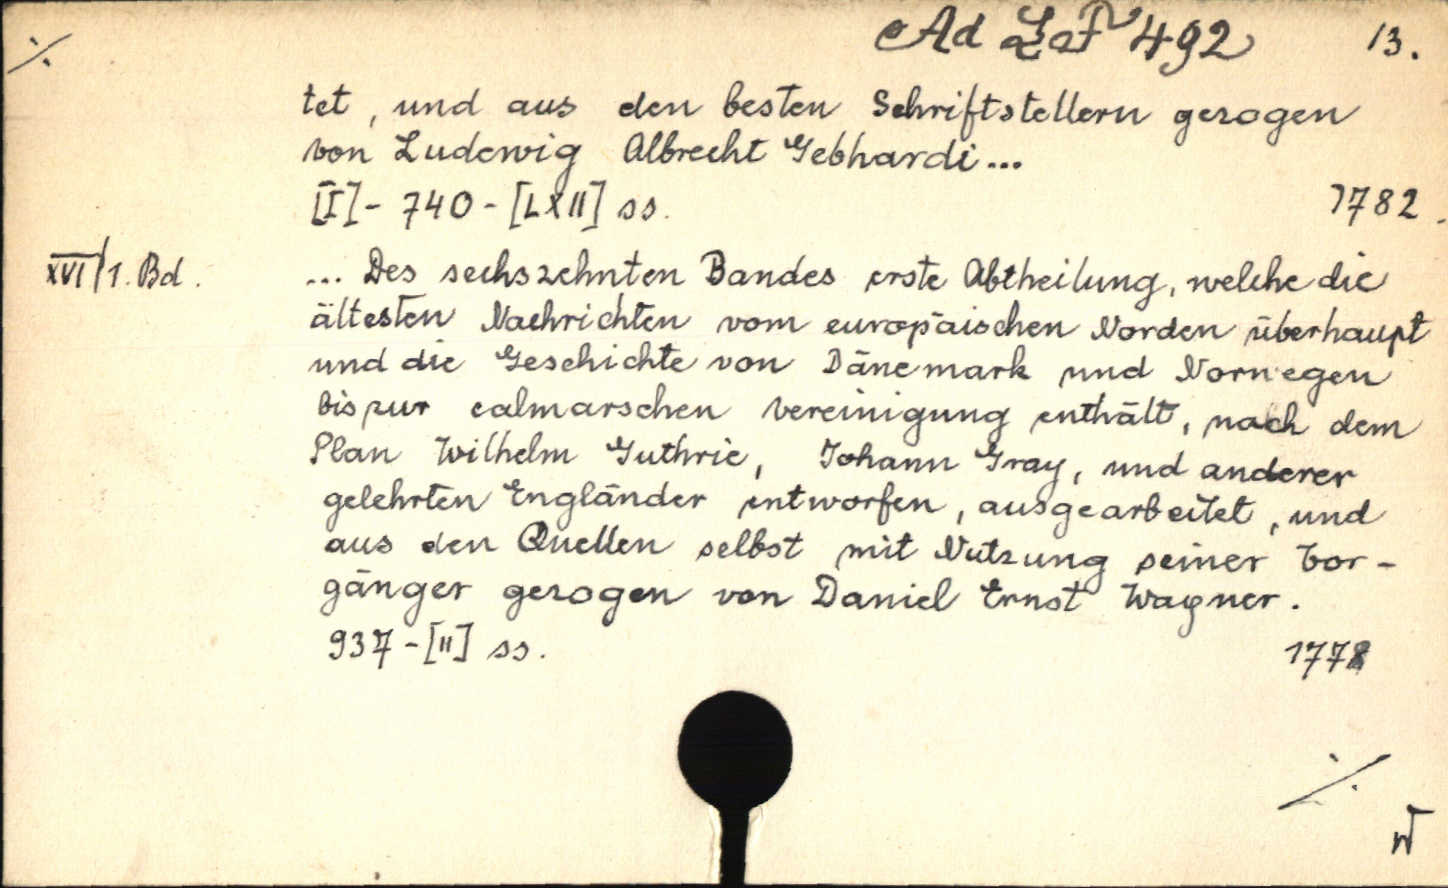 ⁒ Ad Lat 492 13.
tet, und aus den besten Schriftstellern gezogen
von Ludewig Albrecht Gebhardi ...
[I] - 740 - [LXII] ss. 1782.
XVI/1. Bd. ... Des sechszehnten Bandes erste Abtheilung, welche die
ältesten Nachrichten vom europäischen Norden überhaupt
und die Geschichte von Dänemark und Norwegen
bis zur calmarschen Vereinigung enthält, nach dem
Plan Wilhelm Guthrie, Johann Gray, und anderer
gelehrten Engländer entworfen, ausgearbeitet, und
aus den Quellen selbst mit Nutzung seiner Vor-
gänger gezogen von Daniel Ernst Wagner.
937 - [II] ss. 1778
⁒